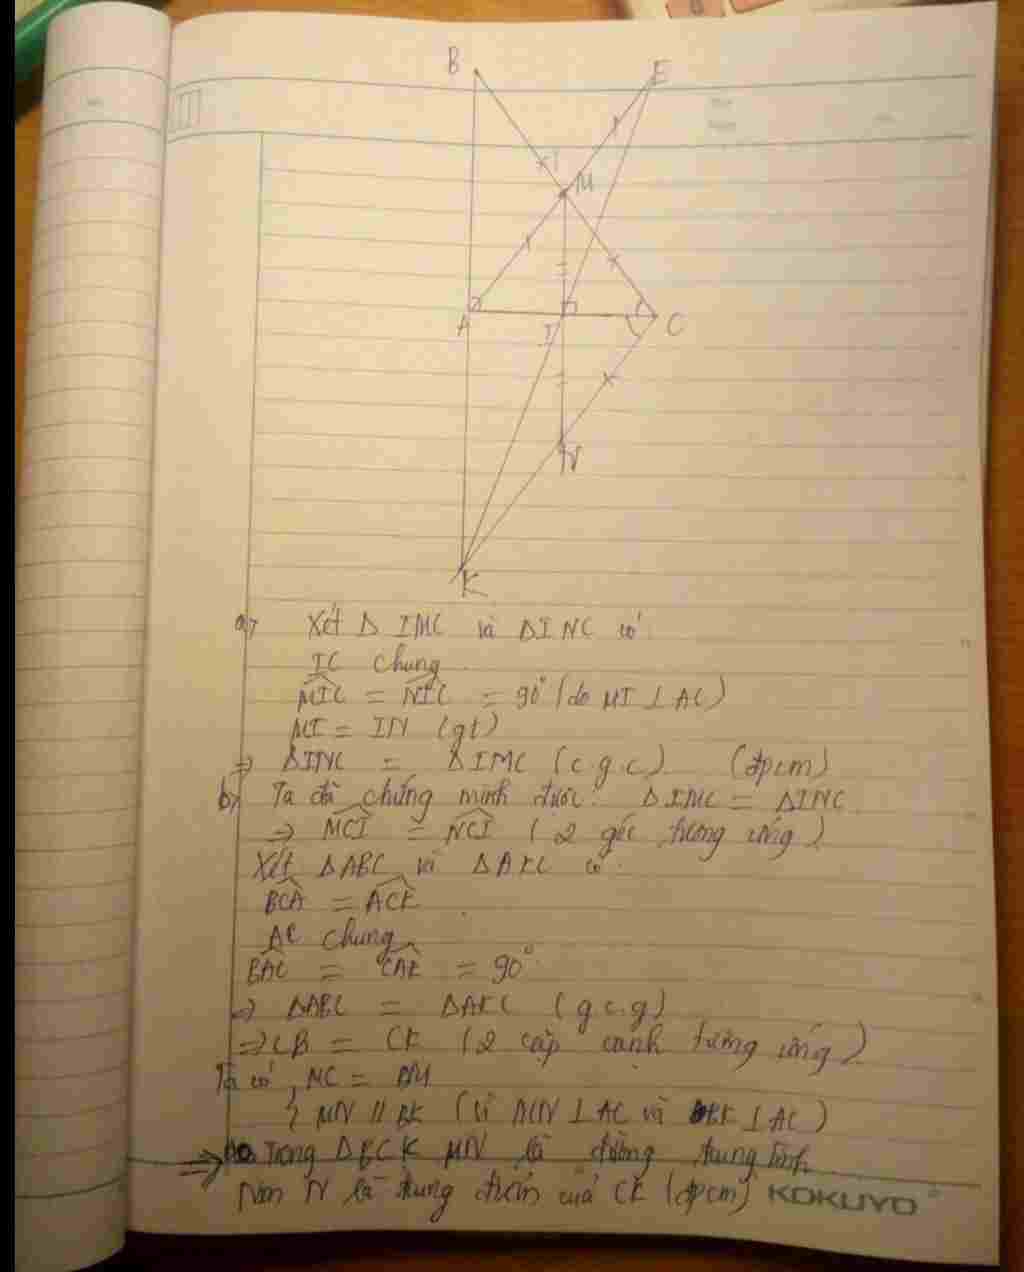 B
E
M
A
I
C
N
K
a, Xét Δ IMC và ΔINC có:
IC chung
MIC = NIC = 90° (do MI ⊥ AC)
MI = IN (gt)
⇒ ΔINC = ΔIMC (c.g.c) (đpcm)
b, Ta đã chứng minh được: ΔIMC = ΔINC
⇒ MCI = NCI (2 góc tương ứng)
Xét ΔABC và ΔAKC có:
BCA = ACK
AC chung
BAC = CAK = 90°
⇒ ΔABC = ΔAKC (g.c.g)
⇒ CB = CK (2 cặp cạnh tương ứng)
Ta có { MC = BM
MN // BK (vì MN ⊥ AC và BK ⊥ AC)
⇒ Trong ΔBCK MN là đường trung bình
Nên N là trung điểm của CK (đpcm)
KOKUYO